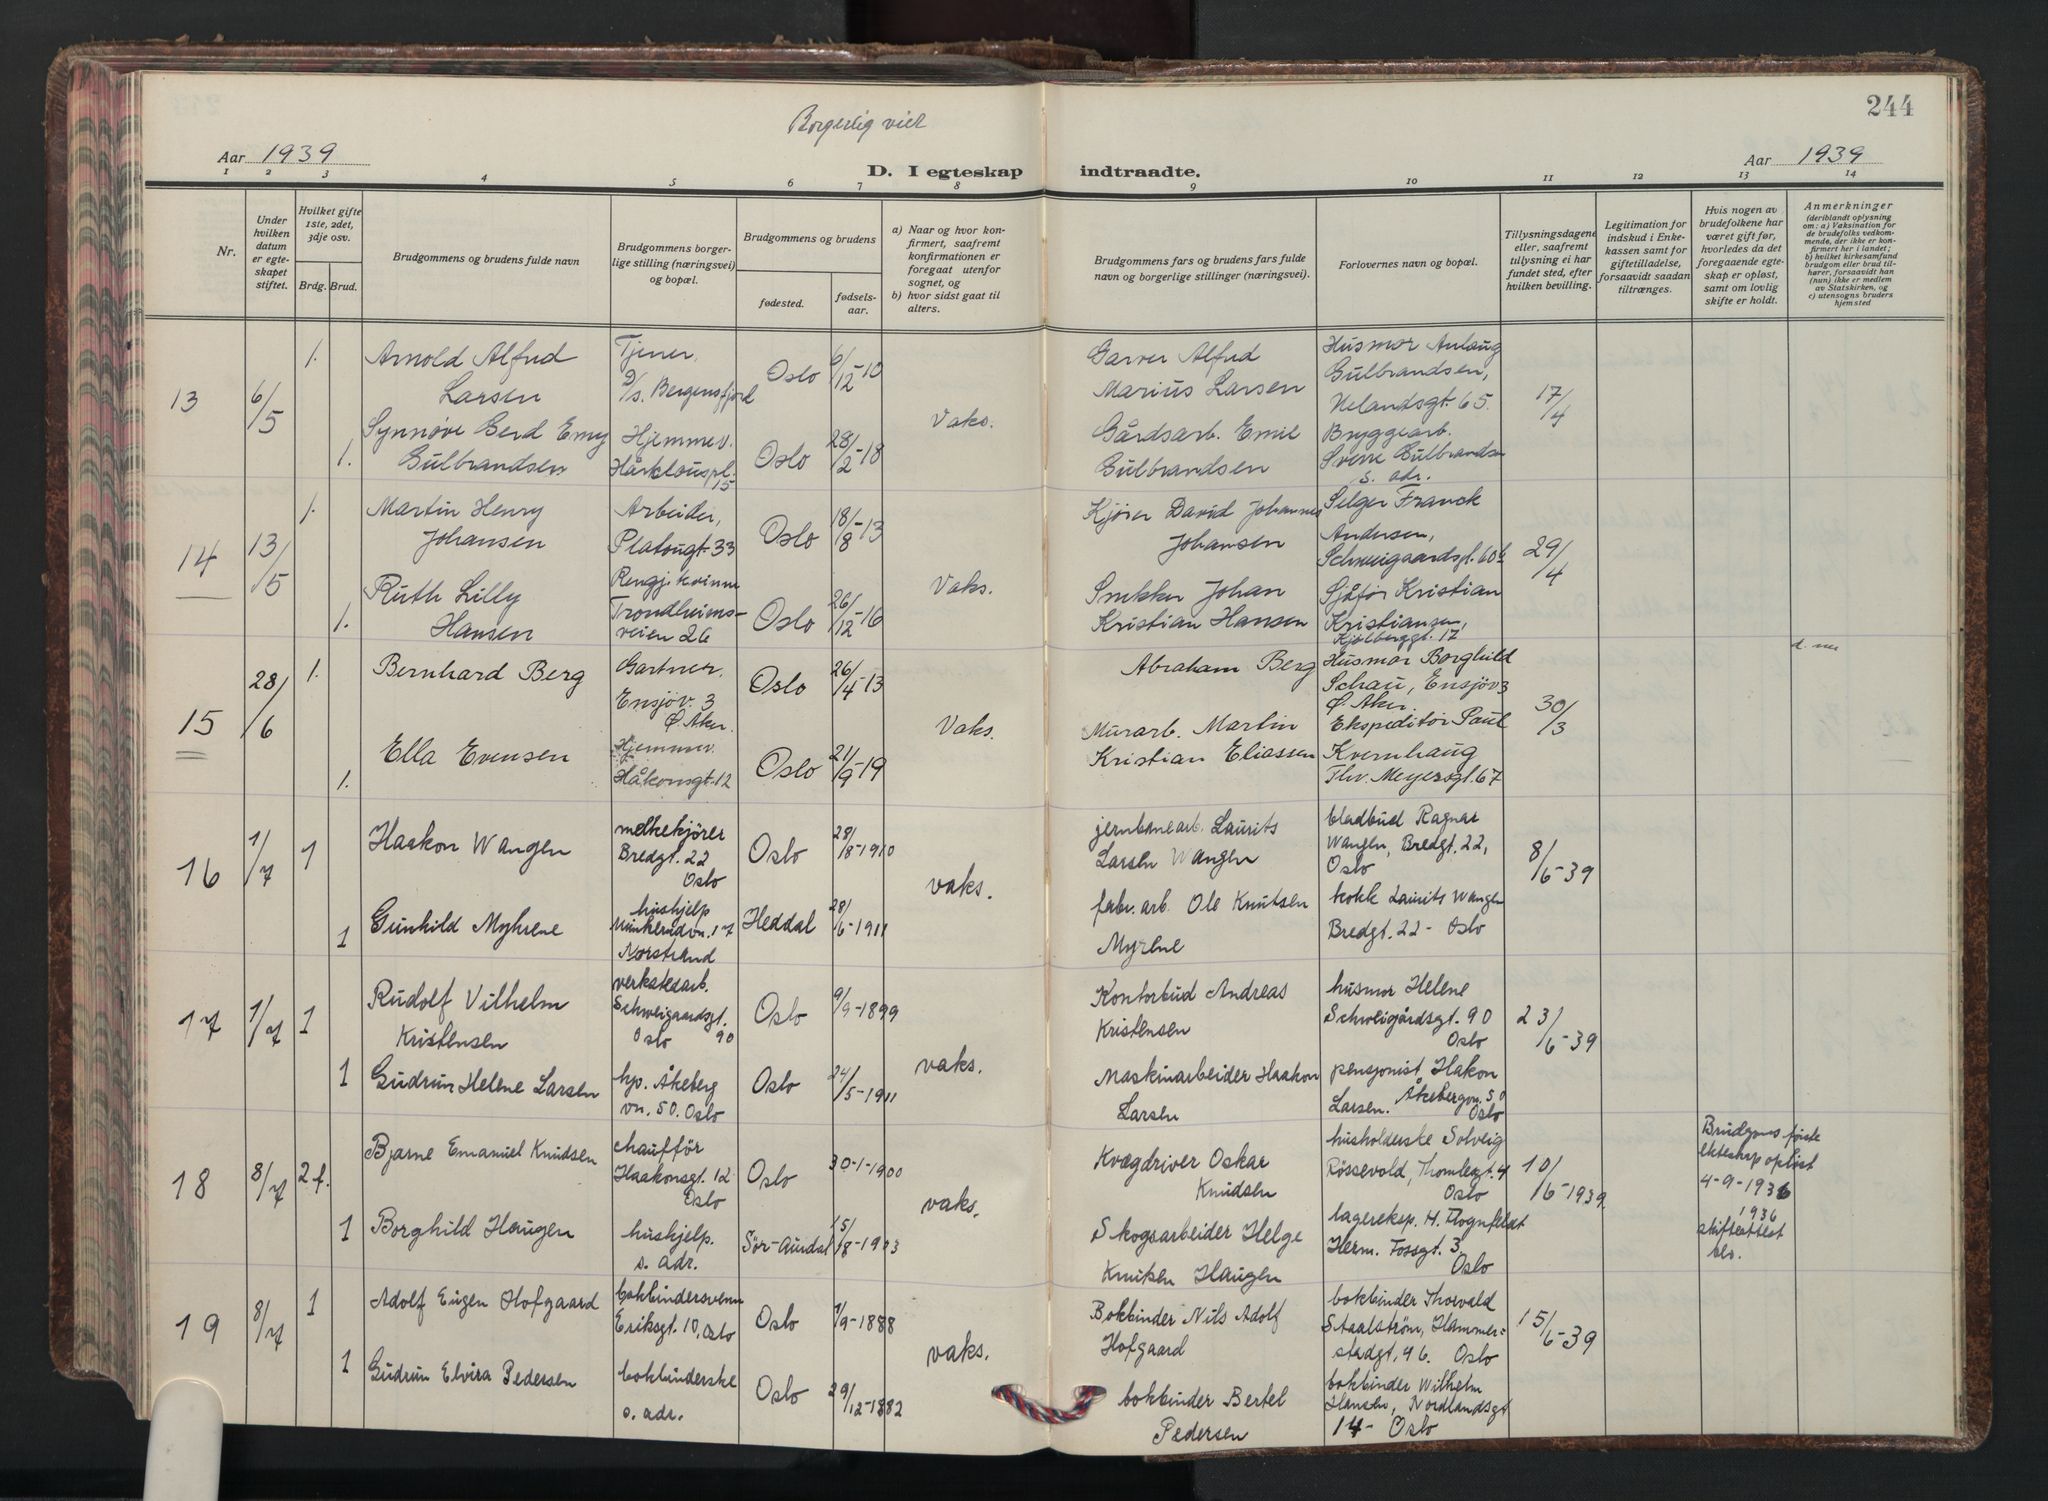 244
Borgerlig viet
Aar 1939
D. I egteskap indtraadte.
Aar 1939
1 2 3 4 5 6 7 8 9 10 11 12 13 14
Nr.
Under hvilken datum er egteskapet stiftet.
Hvilket gifte 1ste, 2det, 3dje osv.
Brdg. Brud.
Brudgommens og brudens fulde navn
Brudgommens borgerlige stilling (næringsvei) og bopæl.
Brudgommens og brudens
fødested.
fødselsaar.
a) Naar og hvor konfirmert, saafremt konfirmationen er foregaat utenfor sognet, og
b) hvor sidst gaat til alters.
Brudgommens fars og brudens fars fulde navn og borgerlige stillinger (næringsvei).
Forlovernes navn og bopæl.
Tillysningsdagene eller, saafremt tillysning ei har fundet sted, efter hvilken bevilling.
Legitimation for indskud i Enkekassen samt for giftetilladelse, forsaavidt saadan tiltrænges.
Hvis nogen av brudefolkene har været gift før, hvorledes da det foregaaende egteskap er opløst, samt om lovlig skifte er holdt.
Anmerkninger
(deriblandt oplysning om: a) Vaksination for de brudefolks vedkommende, der ikke er konfirmert her i landet; b) hvilket kirkesamfund brudgom eller brud tilhører, forsaavidt han (hun) ikke er medlem av Statskirken, og c) utensogns bruders hjemsted
13 6/5 1. Arnold Alfred Larsen
Tjener, D/s. Bergensfjord
Oslo 6/12-10
1. Synnøve Gerd Emy Gulbrandsen
Hjemmev. Hårklouspl. 15
Oslo 28/2-18
Vaks.
Garver Alfred Marius Larsen
Gårdsarb. Emil Gulbrandsen
Husmor Anlaug Gulbrandsen, Nelandsgt. 65.
Bryggearb. Sverre Gulbrandsen s. adr.
17/4
14 13/5 1. Martin Henry Johansen
Arbeider, Platougt. 33
Oslo 18/8-13
1. Ruth Lilly Hansen
Rengj.kvinne Trondheimsveien 26
Oslo 26/12-16
Vaks.
Kjører David Johannes Johansen
Snekker Johan Kristian Hansen
Selger Franck Andersen, Schweigaardsgt. 60b
Sjåfør Kristian Kristiansen, Kjølberggt. 17
29/4
15 28/6 1. Bernhard Berg
Gartner, Ensjøv. 3 Ø. Aker.
Oslo 26/4-13
1. Ella Evensen
Hjemmev. Håkonsgt. 12
Oslo 21/9-19
Vaks.
Abraham Berg
Murarb. Martin Kristian Eliassen
Husmor Borghild Schau, Ensjøv 3 Ø. Aker.
Ekspeditør Paul Kvernhaug Thv. Meyersgt. 67
30/3
16 1/7 1 Haakon Wangen
melkekjører Bredgt. 22 Oslo
Oslo 28/8-1910
1 Gunhild Myhrene
hushjelp Munkerudvn. 17 Norstrand
Heddal 28/6-1911
vaks.
jernbanearb. Laurits Larsen Wangen
fabr. arb. Ole Knutsen Myrene
bladbud Ragnar Wangen, Bredgt. 22, Oslo
kokk Laurits Wangen Bredgt. 22 - Oslo
8/6-39
17 1/7 1 Rudolf Vilhelm Kristensen
verkstedarb. Schweigaardsgt. 90 Oslo
Oslo 9/9-1899
1 Gudrun Helene Larsen
hp. Åkeberg vn. 50. Oslo
Oslo 24/5-1911
vaks.
Kontorbud Andreas Kristensen
Maskinarbeider Haakon Larsen
husmor Helene Schweigårdsgt. 90 Oslo
pensjonist Hakon Larsen. Åkebergvn. 50 Oslo
23/6-39
18 8/7 2 f. Bjarne Emanuel Knudsen
chauffør Haakonsgt. 12 Oslo
Oslo 30-1-1900
1 Borghild Haugen
hushjelp. s. adr.
Sør-Aurdal 15/8-1913
vaks.
Kvægdriver Oskar Knudsen
Skogsarbeider Helge Knutsen Haugen
husholderske Solveig Røssevold, Thomlegt. 4 Oslo
lagereksp. H. Rognfeldt Herm. Fossgt. 3, Oslo
10/6-1939
Brudgoms første ekteskap opløst 4-9-1936
1936
skifteattest bev.
19 8/7 1 Adolf Eugen Hofgaard
bokbindersvenn Eriksgt. 10, Oslo
Oslo 1/9-1888
1 Gudrun Elvira Pedersen
bokbinderske s. adr.
Oslo 29/12-1882
vaks.
Bokbinder Nils Adolf Hofgaard
bokbinder Bertel Pedersen
bokbinder Thorvald Staalstrøm, Hammerstadgt, 46. Oslo
bokbinder Wilhelm Hansen, Nordlandsgt 14 - Oslo
15/6-39